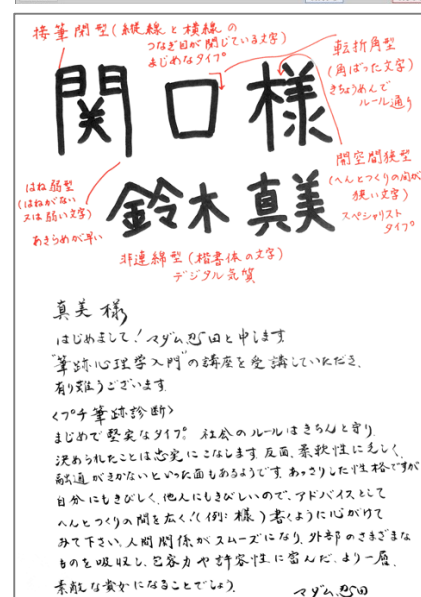 接筆閉型(縦線と横線の
つなぎ目が閉じている文字)
まじめなタイプ
転折角型
(角ばった文字)
きちょうめんで
ルール通り
関口様
開空間狭型
(へんとつくりの間が
狭い文字)
スペシャリスト
タイプ
はね弱型
(はねがない
又は弱い文字)
あきらめが早い
鈴木真美
非連綿型(楷書体の文字)
デジタル気質
真美様
はじめまして!マダム忍田と申します
"筆跡心理学入門"の講座を受講していただき、
有り難うございます
<プチ筆跡診断>
まじめで堅実なタイプ。社会のルールはきちんと守り、
決められたことは忠実にこなします。反面、柔軟性に乏しく、
融通がきかないといった面もあるようです。あっさりした性格ですが
自分にもきびしく、他人にもきびしいので、アドバイスとして
へんとつくりの間を広く!(例:様)書くように心がけて
みて下さい。人間関係がスムーズになり、外部のさまざまな
ものを吸収し、包容力や許容性に富んだ、より一層、
素敵な貴女になることでしょう。
マダム忍田